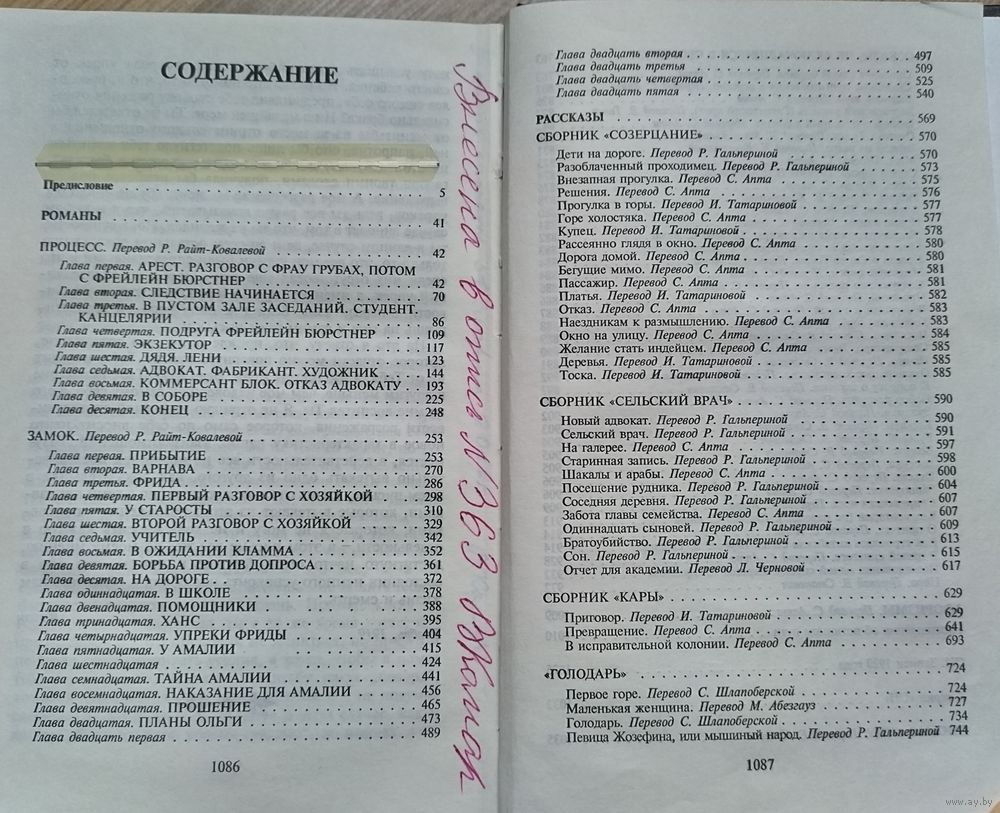 СОДЕРЖАНИЕ
Предисловие . . . 5
РОМАНЫ . . . 41
ПРОЦЕСС. Перевод Р. Райт-Ковалевой . . . 42
Глава первая. АРЕСТ. РАЗГОВОР С ФРАУ ГРУБАХ, ПОТОМ
С ФРЕЙЛЕЙН БЮРСТНЕР . . . 42
Глава вторая. СЛЕДСТВИЕ НАЧИНАЕТСЯ . . . 70
Глава третья. В ПУСТОМ ЗАЛЕ ЗАСЕДАНИЙ. СТУДЕНТ.
КАНЦЕЛЯРИИ . . . 86
Глава четвертая. ПОДРУГА ФРЕЙЛЕЙН БЮРСТНЕР . . . 109
Глава пятая. ЭКЗЕКУТОР . . . 117
Глава шестая. ДЯДЯ. ЛЕНИ . . . 123
Глава седьмая. АДВОКАТ. ФАБРИКАНТ. ХУДОЖНИК . . . 144
Глава восьмая. КОММЕРСАНТ БЛОК. ОТКАЗ АДВОКАТУ . . . 193
Глава девятая. В СОБОРЕ . . . 225
Глава десятая. КОНЕЦ . . . 248
ЗАМОК. Перевод Р. Райт-Ковалевой . . . 253
Глава первая. ПРИБЫТИЕ . . . 253
Глава вторая. ВАРНАВА . . . 270
Глава третья. ФРИДА . . . 286
Глава четвертая. ПЕРВЫЙ РАЗГОВОР С ХОЗЯЙКОЙ . . . 298
Глава пятая. У СТАРОСТЫ . . . 310
Глава шестая. ВТОРОЙ РАЗГОВОР С ХОЗЯЙКОЙ . . . 329
Глава седьмая. УЧИТЕЛЬ . . . 342
Глава восьмая. В ОЖИДАНИИ КЛАММА . . . 352
Глава девятая. БОРЬБА ПРОТИВ ДОПРОСА . . . 361
Глава десятая. НА ДОРОГЕ . . . 372
Глава одиннадцатая. В ШКОЛЕ . . . 378
Глава двенадцатая. ПОМОЩНИКИ . . . 388
Глава тринадцатая. ХАНС . . . 395
Глава четырнадцатая. УПРЕКИ ФРИДЫ . . . 404
Глава пятнадцатая. У АМАЛИИ . . . 415
Глава шестнадцатая . . . 424
Глава семнадцатая. ТАЙНА АМАЛИИ . . . 441
Глава восемнадцатая. НАКАЗАНИЕ ДЛЯ АМАЛИИ . . . 456
Глава девятнадцатая. ПРОШЕНИЕ . . . 465
Глава двадцатая. ПЛАНЫ ОЛЬГИ . . . 473
Глава двадцать первая . . . 489
1086
в опись N 363
Глава двадцать вторая . . . 497
Глава двадцать третья . . . 509
Глава двадцать четвертая . . . 525
Глава двадцать пятая . . . 540
РАССКАЗЫ . . . 569
СБОРНИК «СОЗЕРЦАНИЕ» . . . 570
Дети на дороге. Перевод Р. Гальпериной . . . 570
Разоблаченный проходимец. Перевод Р. Гальпериной . . . 573
Внезапная прогулка. Перевод С. Апта . . . 575
Решения. Перевод С. Апта . . . 576
Прогулка в горы. Перевод И. Татариновой . . . 577
Горе холостяка. Перевод С. Апта . . . 577
Купец. Перевод И. Татариновой . . . 578
Рассеянно глядя в окно. Перевод С. Апта . . . 580
Дорога домой. Перевод С. Апта . . . 580
Бегущие мимо. Перевод С. Апта . . . 581
Пассажир. Перевод С. Апта . . . 581
Платья. Перевод И. Татариновой . . . 582
Отказ. Перевод С. Апта . . . 583
Наездникам к размышлению. Перевод С. Апта . . . 583
Окно на улицу. Перевод С. Апта . . . 584
Желание стать индейцем. Перевод С. Апта . . . 585
Деревья. Перевод И. Татариновой . . . 585
Тоска. Перевод И. Татариновой . . . 585
СБОРНИК «СЕЛЬСКИЙ ВРАЧ» . . . 590
Новый адвокат. Перевод Р. Гальпериной . . . 590
Сельский врач. Перевод Р. Гальпериной . . . 591
На галерее. Перевод С. Апта . . . 597
Старинная запись. Перевод Р. Гальпериной . . . 598
Шакалы и арабы. Перевод С. Апта . . . 600
Посещение рудника. Перевод Р. Гальпериной . . . 604
Соседняя деревня. Перевод Р. Гальпериной . . . 607
Забота главы семейства. Перевод С. Апта . . . 607
Одиннадцать сыновей. Перевод Р. Гальпериной . . . 609
Братоубийство. Перевод Р. Гальпериной . . . 613
Сон. Перевод Р. Гальпериной . . . 615
Отчет для академии. Перевод Л. Черновой . . . 617
СБОРНИК «КАРЫ» . . . 629
Приговор. Перевод И. Татариновой . . . 629
Превращение. Перевод С. Апта . . . 641
В исправительной колонии. Перевод С. Апта . . . 693
«ГОЛОДАРЬ» . . . 724
Первое горе. Перевод С. Шлапоберской . . . 724
Маленькая женщина. Перевод М. Абезгауз . . . 727
Голодарь. Перевод С. Шлапоберской . . . 734
Певица Жозефина, или мышиный народ. Перевод Р. Гальпериной 744
1087
www.ay.by